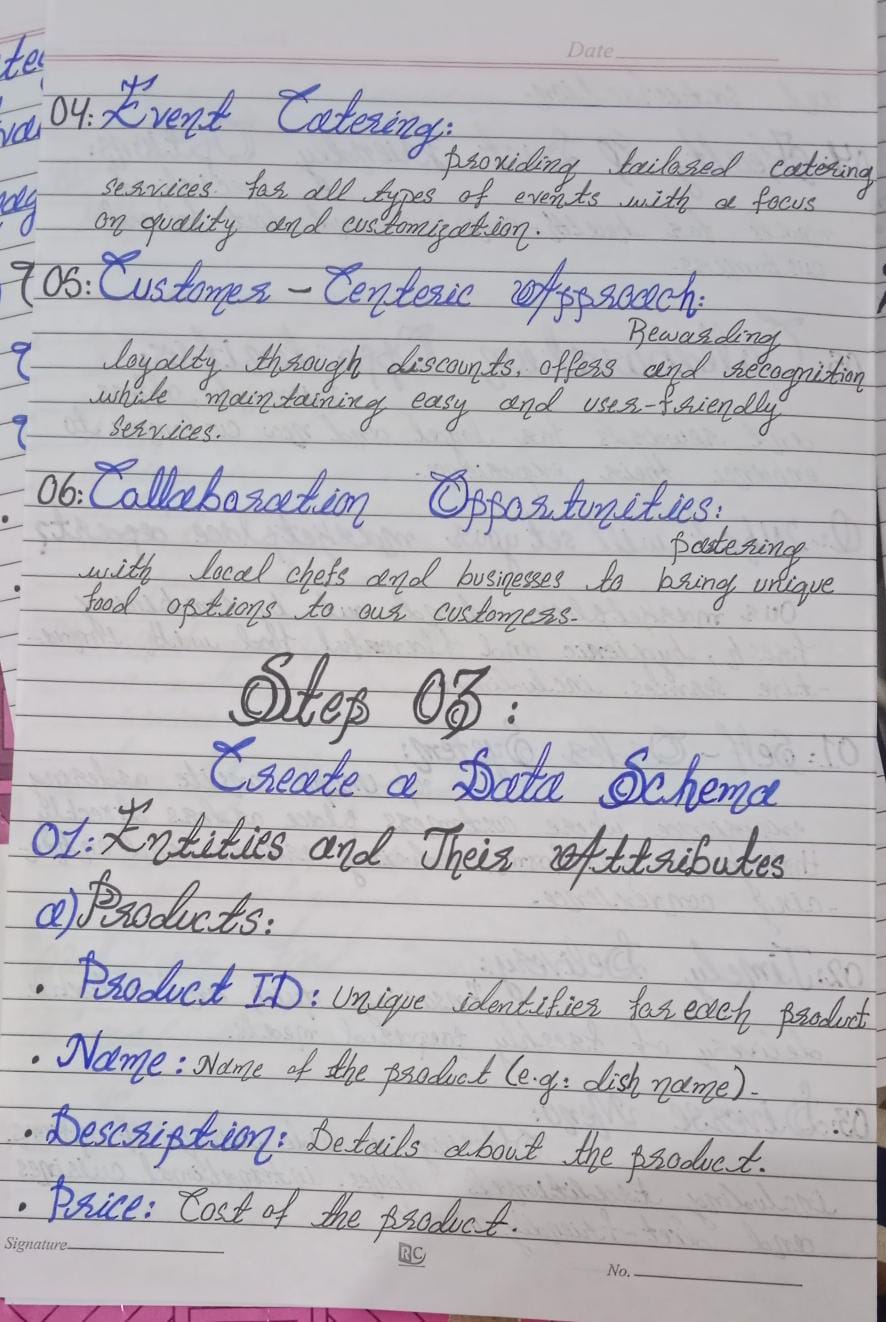 Date
04: Event Catering:
providing tailored catering
services for all types of events with a focus
on quality and customization.
05: Customer - Centeric Approach:
Rewarding
loyalty through discounts, offers and recognition
while maintaining easy and user-friendly
services.
06: Collaboration Opportunities:
patering
with local chefs and businesses to bring unique
food options to our customers.
Step 03:
Create a Data Schema
01: Entities and Their Attributes
a) Products:
• Product ID: Unique identifier for each product
• Name: Name of the product (e.g: dish name).
• Description: Details about the product.
• Price: Cost of the product.
Signature
RC
No.